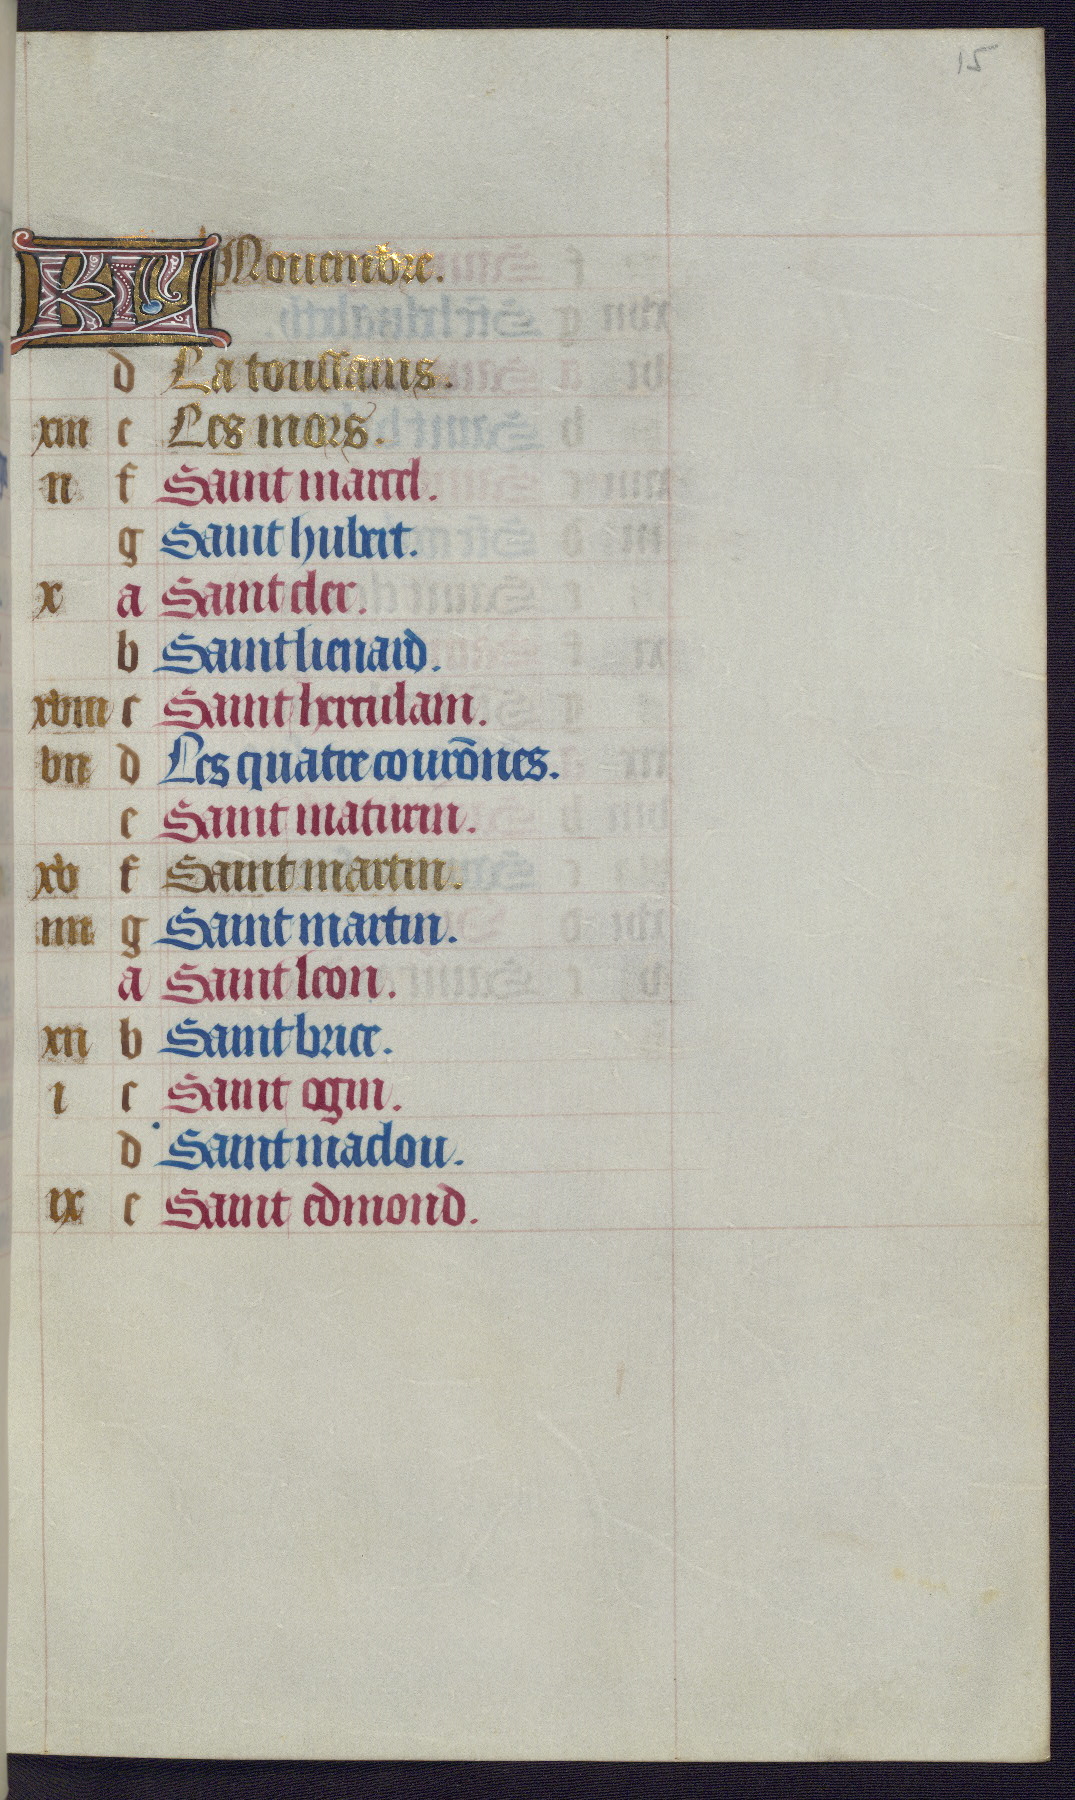 15
KL Nouembre.
d La toussains.
xiii e Les mors.
ii f Saint marcel.
g Saint hubert.
x a Saint cler.
b Saint lienard.
xviii c Saint herculain.
vii d Les quatre courōnes.
e Saint maturin.
xv f Saint martin.
iiii g Saint martin.
a Saint leon.
xii b Saint brice.
i c Saint ogin.
d Saint maclou.
ix e Saint edmond.